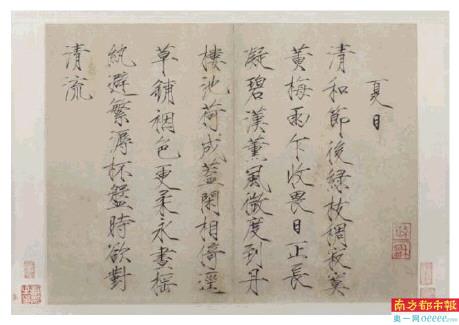 夏日
清和節後綠枝稠寂寞
黃梅雨乍收畏日正長
凝碧漢薰風微度到丹
樓池荷成蓋閑相倚逕
草鋪裀色更柔永晝搖
紈避繁溽杯盤時欲對
清流
南方都市報
奥一网oeeee.com